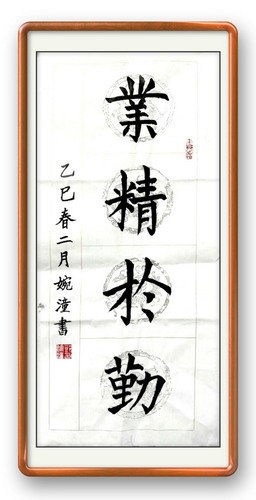 業精於勤
乙巳春二月婉潼書